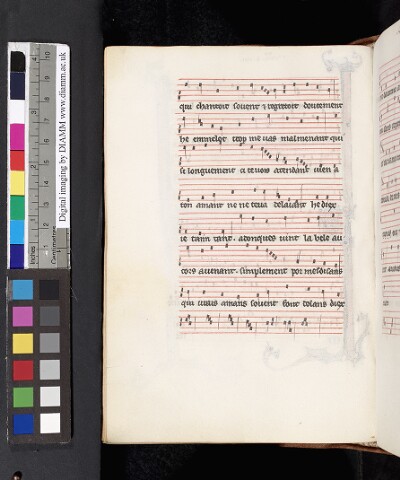 Digital imaging by DIAMM www.diamm.ac.uk
Inches
Centimetres
qui chantoit souent & regretoit doucement
he emmelot trop me uas malmenant qui
si longuement a te uois atendant
ton amant ne ne ueus delaissier he dieus
ie taim tant. adonques uint la bele au
cors auenant. simplement por mesdisans
qui urais amans souent font dolans dieus